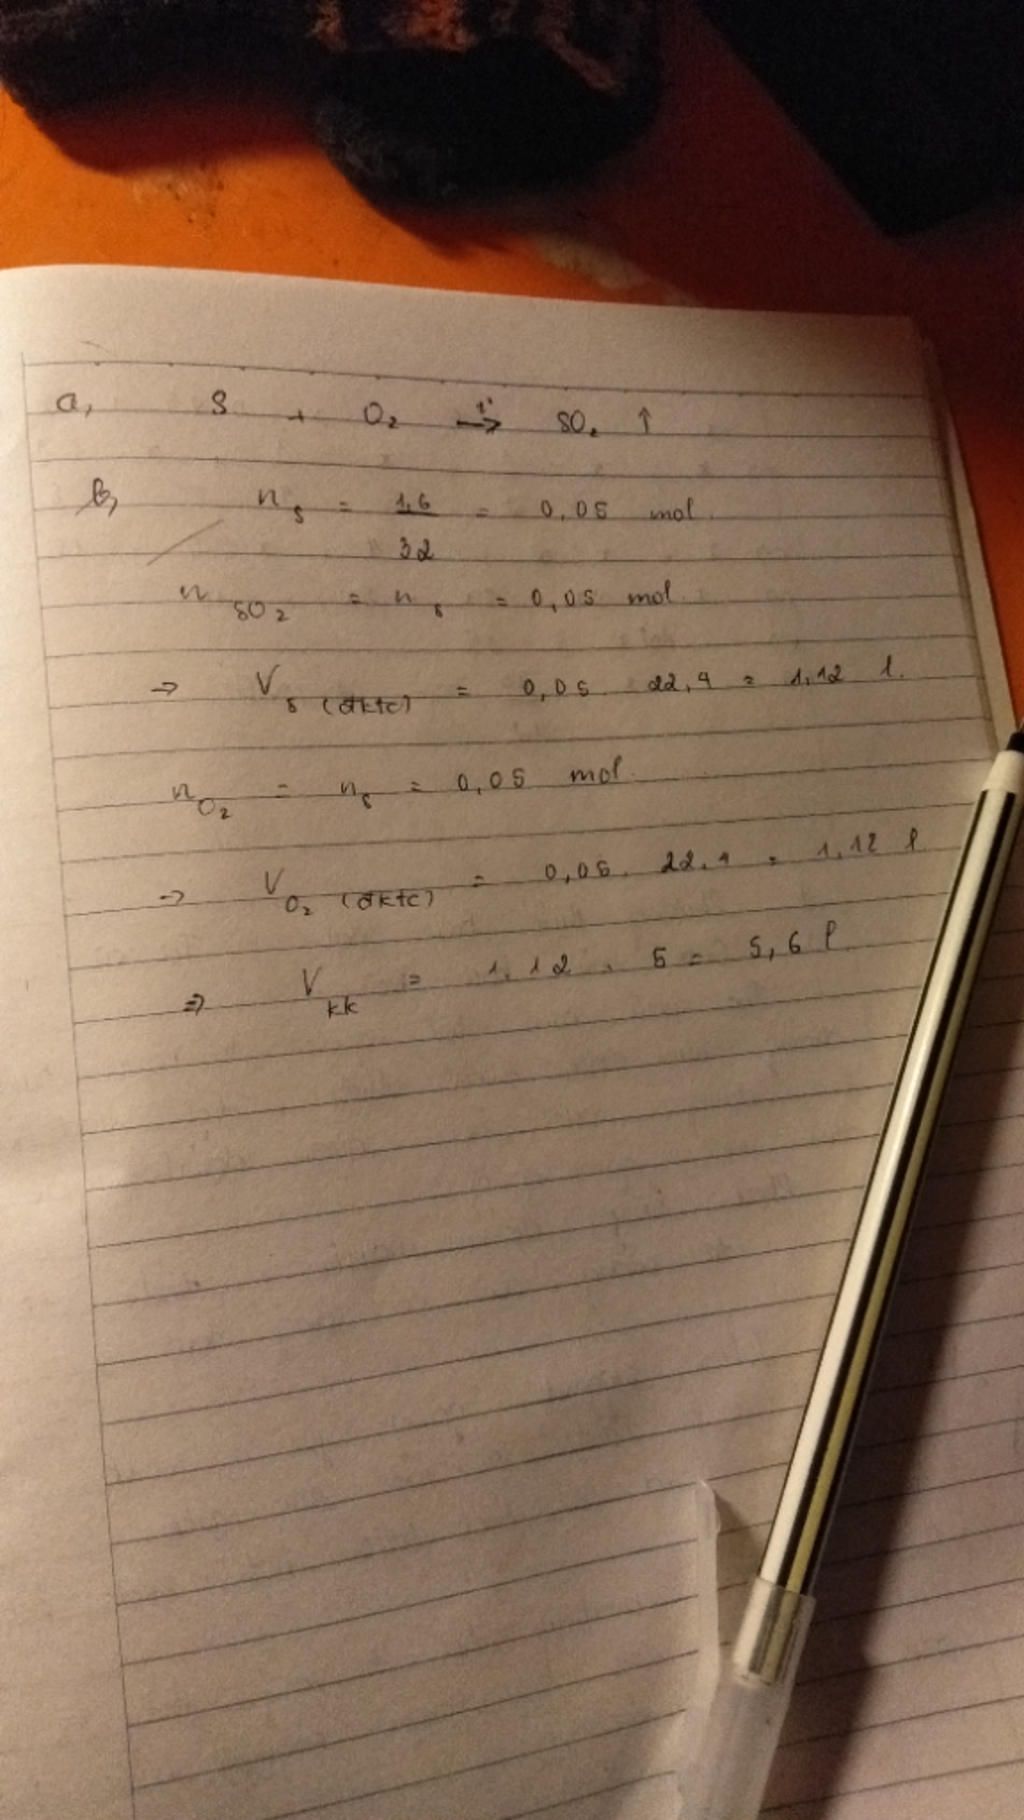 a, S + O₂ —t°→ SO₂ ↑
b, n S = 1,6 / 32 = 0,05 mol.
n SO₂ = n S = 0,05 mol.
→ V S (đktc) = 0,05 22,4 = 1,12 l.
n O₂ = n S = 0,05 mol.
→ V O₂ (đktc) = 0,05. 22,4 = 1,12 l
⇒ V kk = 1,12 . 5 = 5,6 l